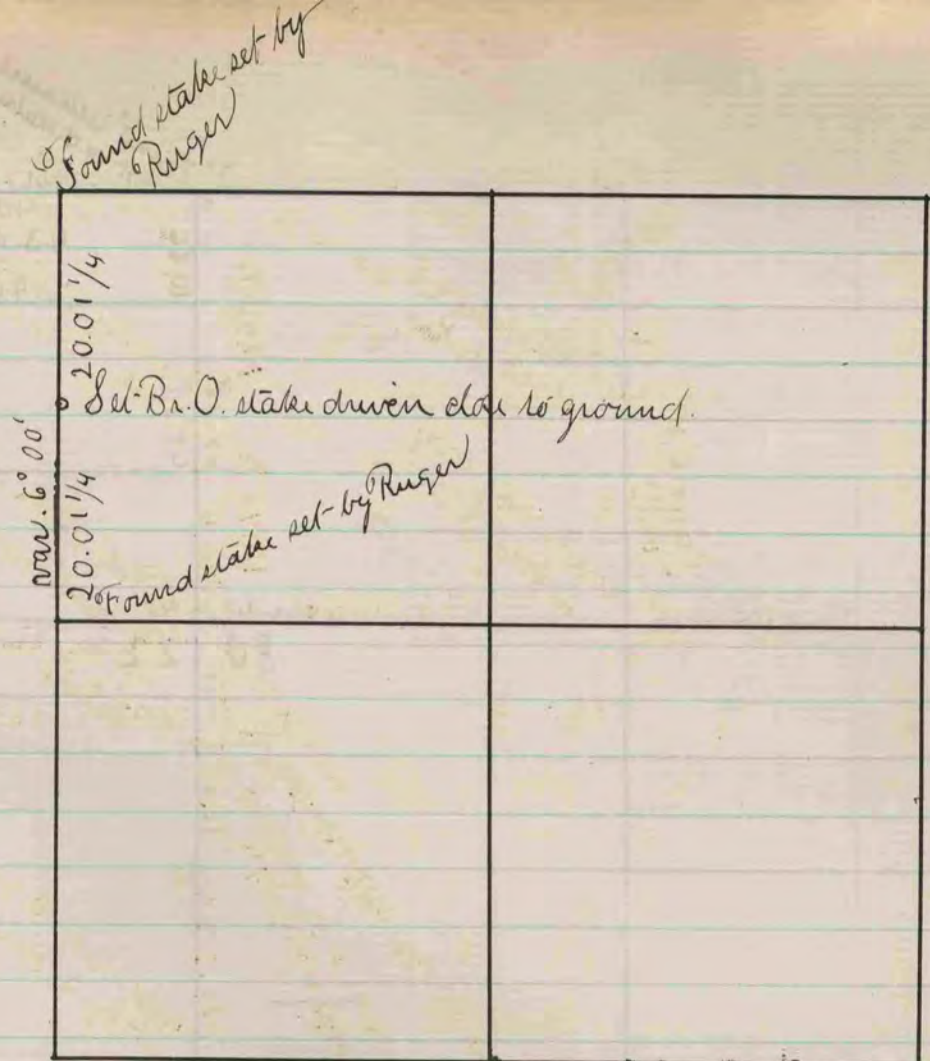 Found stake set by
Ruger
20.01 1/4
Set Br. O. stake driven close to ground.
var. 6° 00'
20.01 1/4
Found stake set by Ruger